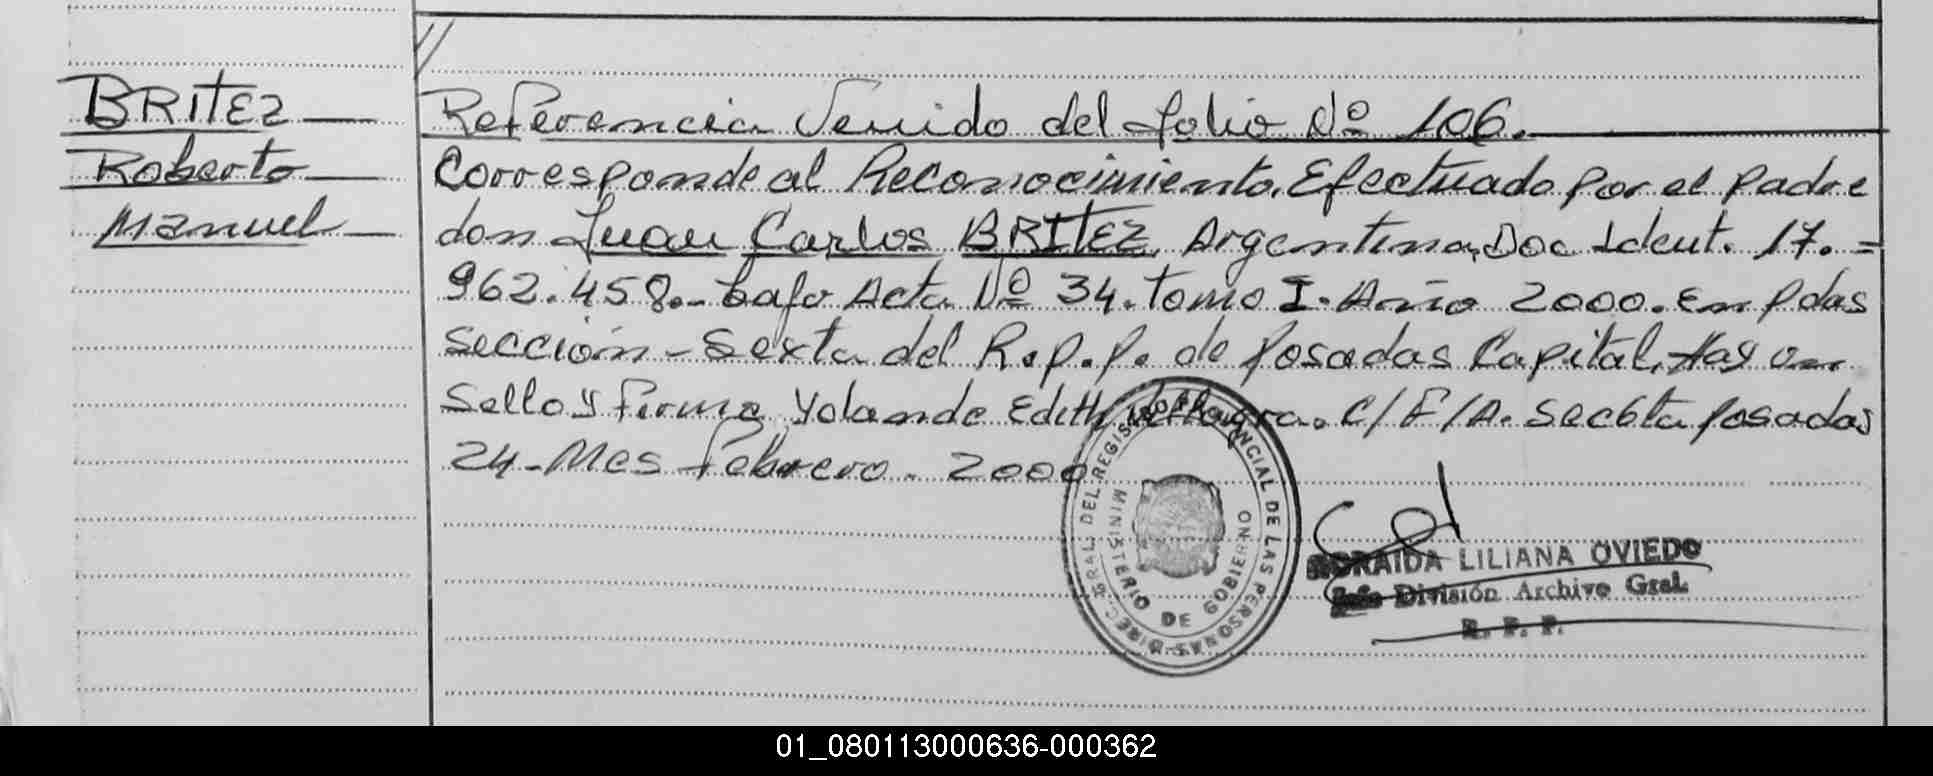 //
BRITEZ
Roberto
Manuel
Referencia Venido del folio Nº 106.
Corresponde al Reconocimiento. Efectuado por el padre
don Juan Carlos BRITEZ. Argentino, Doc Ident. 17.=
962.458.- bajo Acta Nº 34. tomo I. Año 2000. En Pdas
Sección - Sexta del R.p.p. de Posadas Capital. Hay un
Sello y firma Yolanda Edith C/F/A. Sec 6ta Posadas
24 - Mes Febrero. 2000
DIREC. GRAL. DEL REGISTRO PROVINCIAL DE LAS PERSONAS
MINISTERIO DE GOBIERNO
LILIANA OVIEDO
Jefe División Archivo Gral.
R. P. P.
01_080113000636-000362